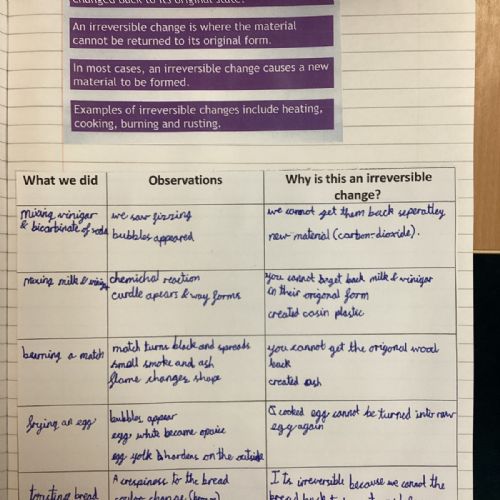 changed back to its original state.
An irreversible change is where the material
cannot be returned to its original form.
In most cases, an irreversible change causes a new
material to be formed.
Examples of irreversible changes include heating,
cooking, burning and rusting.
What we did
Observations
Why is this an irreversible
change?
mixing vinigar
& bicarbinate of soda
we saw fizzing
bubbles appeared
we cannot get them back seperatley
new material (carbon-dioxide).
mixing milk &
chemichal reaction
curdle apears & way forms
you cannot get back milk & vinigar
in their origonal form
created casin plastic
burning a match
match turns black and spreads
small smoke and ash
flame changes shape
you cannot get the origonal wood
back
created ash
frying an egg
bubbles appear
egg white became opaice
egg yolk & hardens on the outside
A cooked egg cannot be turned into raw
egg again
toasting bread
A crispiness to the bread
colour change (brown)
It is irreversible because we cannot the
bread back to